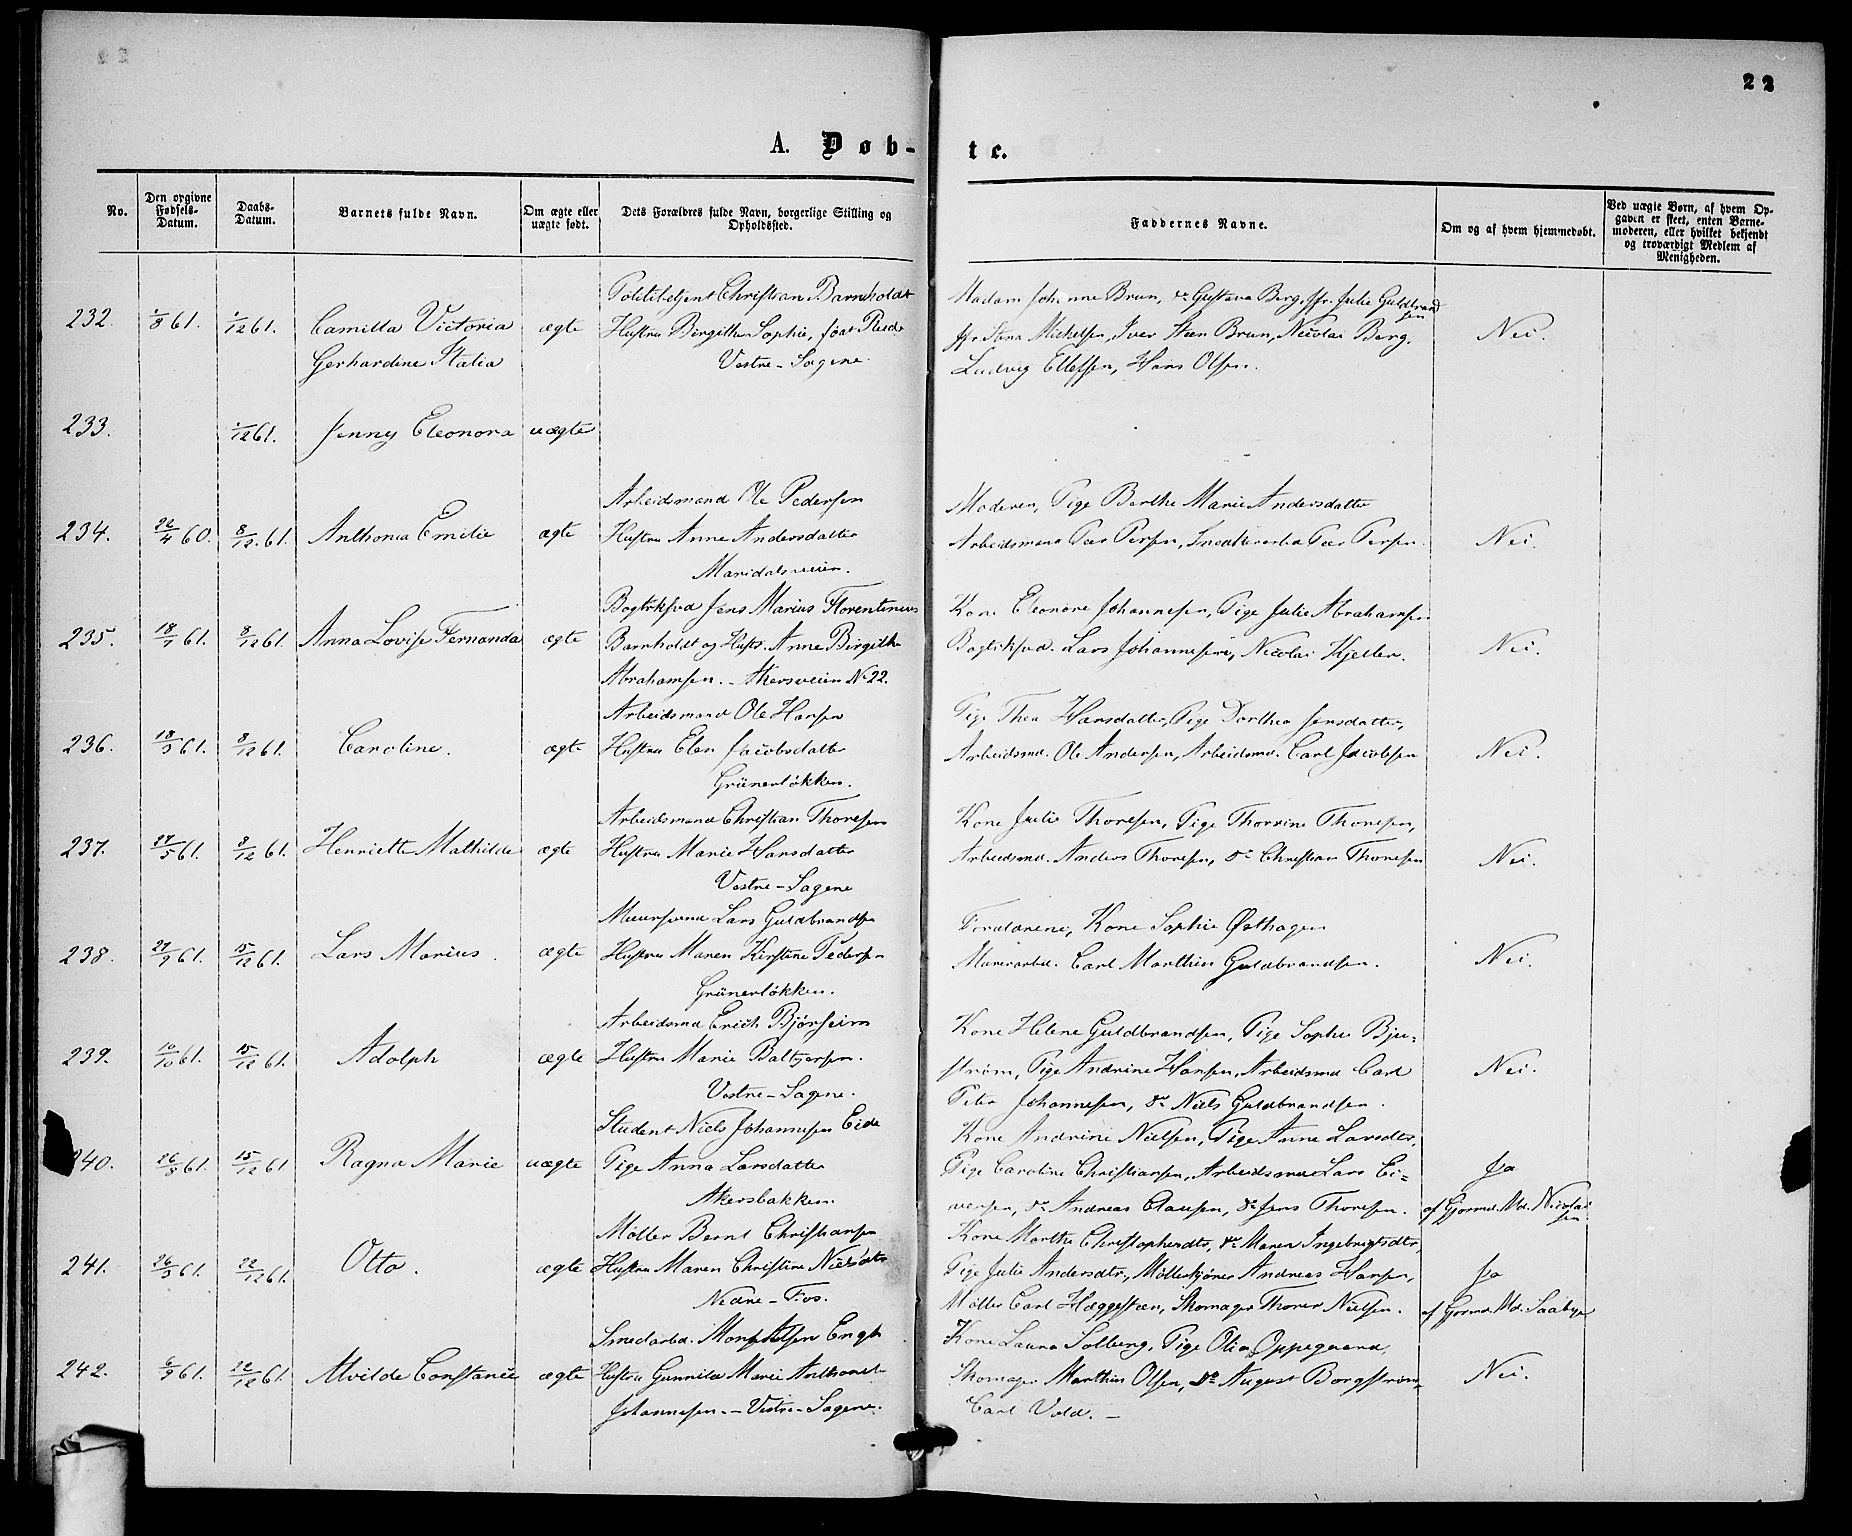 22
A. Døb-
te.
No.
Den opgivne Fødsels-Datum.
Daabs-Datum.
Barnets fulde Navn.
Om ægte eller uægte født.
Dets Forældres fulde Navn, borgerlige Stilling og Opholdssted.
Faddernes Navne.
Om og af hvem hjemmedøbt.
Ved uægte Børn, af hvem Op-
gaven er skeet, enten Barne-
moderen, eller hvilket bekjendt
og troværdigt Medlem af
Menigheden.
Politibetjent Christian Barnholdt
Madam Johanne Brun, do Gustava Berg, Jfr. Julie Guldbrandsen
232. 1/8 61. 1/12 61. Camilla Victoria ægte Hustru Birgitha Sophie, født
Jfr. Michelsen, Iver Steen Brun, Nicolai Berg, Nei.
Gerhardine Statia Vestre-Sagene.
Ludvig Ellefsen, Hans Olsen.
233. 1/12 61. Jenny Eleonora uægte
Arbeidsmand Ole Pedersen
Moderen, Pige Berthe Marie Andersdatter
234. 22/4 60. 8/12 61. Anthonia Emilie ægte Hustru Anne Andersdatter
Arbeidsmand Peer Persen, Peer Persen. Nei.
Maridalsveien.
Bogtrksvd Jens Marius Florentinus
Kone Eleonore Johannesen, Pige Julie Abrahamsen
235. 18/7 61. 8/12 61. Anna Lovise Fernanda ægte Barnholdt og Hustr. Anne Birgithe
Bogtrksvd. Lars Johannesen, Nicolai Kjeller. Nei.
Abrahamsen. - Akersveien No 22.
Arbeidsmand Ole Hansen
Pige Thea Hansdatter, Pige Dorthea Jensdatter,
236. 18/9 61. 8/12 61. Caroline. ægte Hustru Elen Jacobsdatter
Arbeidsmd. Ole Andersen, Arbeidsmd. Carl Jacobsen Nei.
Grünerløkken.
Arbeidsmand Christian Thoresen
Kone Julie Thoresen, Pige Thorine Thoresen,
237. 27/5 61. 8/12 61. Henriette Mathilde ægte Hustru Marie Hansdatter
Arbeidsmd. Anders Thoresen, do Christian Thoresen Nei.
Vestre-Sagene
Muursvend Lars Guldbrandsen
Forældrene, Kone Sophie Østhagen
238. 27/9 61. 15/12 61. Lars Marius. ægte Hustru Maren Kirstine Pedersen
Murerarbd. Carl Marthin Guldbrandsen. Nei.
Grünerløkken.
Arbeidsmd Erich
Kone Helene Guldbrandsen, Pige Sophie Bju-
239. 10/10 61. 15/12 61. Adolph ægte Hustru Marie Baltzersen.
strøm, Pige Andrine Hansen, Arbeidsmd Carl Nei.
Vestre-Sagene.
Peter Johannesen, do Niels Guldbrandsen.
Student Niels Johannesen Eide
Kone Andrine Nielsen, Pige Anne Larsdtr,
240. 26/8 61. 15/12 61 Ragna Marie uægte Pige Anna Larsdatter
Pige Caroline Christiansen, Arbeidsmd Lars Ei- Ja
Akersbakken.
versen, do Andreas Clausen, do Jens Thoresen. af Gjormd. Md. Nicolaisen.
Møller Bernt Christiansen
Kone Marthe Christophersdtr, do Maren Ingebrigtsdtr,
241. 26/9 61. 22/12 61. Otto. ægte Hustru Maren Christine Nielsdtr
Pige Julie Andersdtr, Møllerkjører Andreas Hansen, Ja
Nedre-Fos.
Møller Carl Hæggesteen, Skomager Thorer Nielsen. af Gjormd. Md. Saabye
Smedarbd. Engh
Kone Laura Solberg, Pige Olia Oppegaard,
242. 6/9 61. 22/12 61. Alvilde Constance ægte Hustru Gunnilde Marie
Skomager Marthin Olsen, do August Borgstrøm Nei.
Johannesen. - Vestre-Sagene.
Carl Vold. -